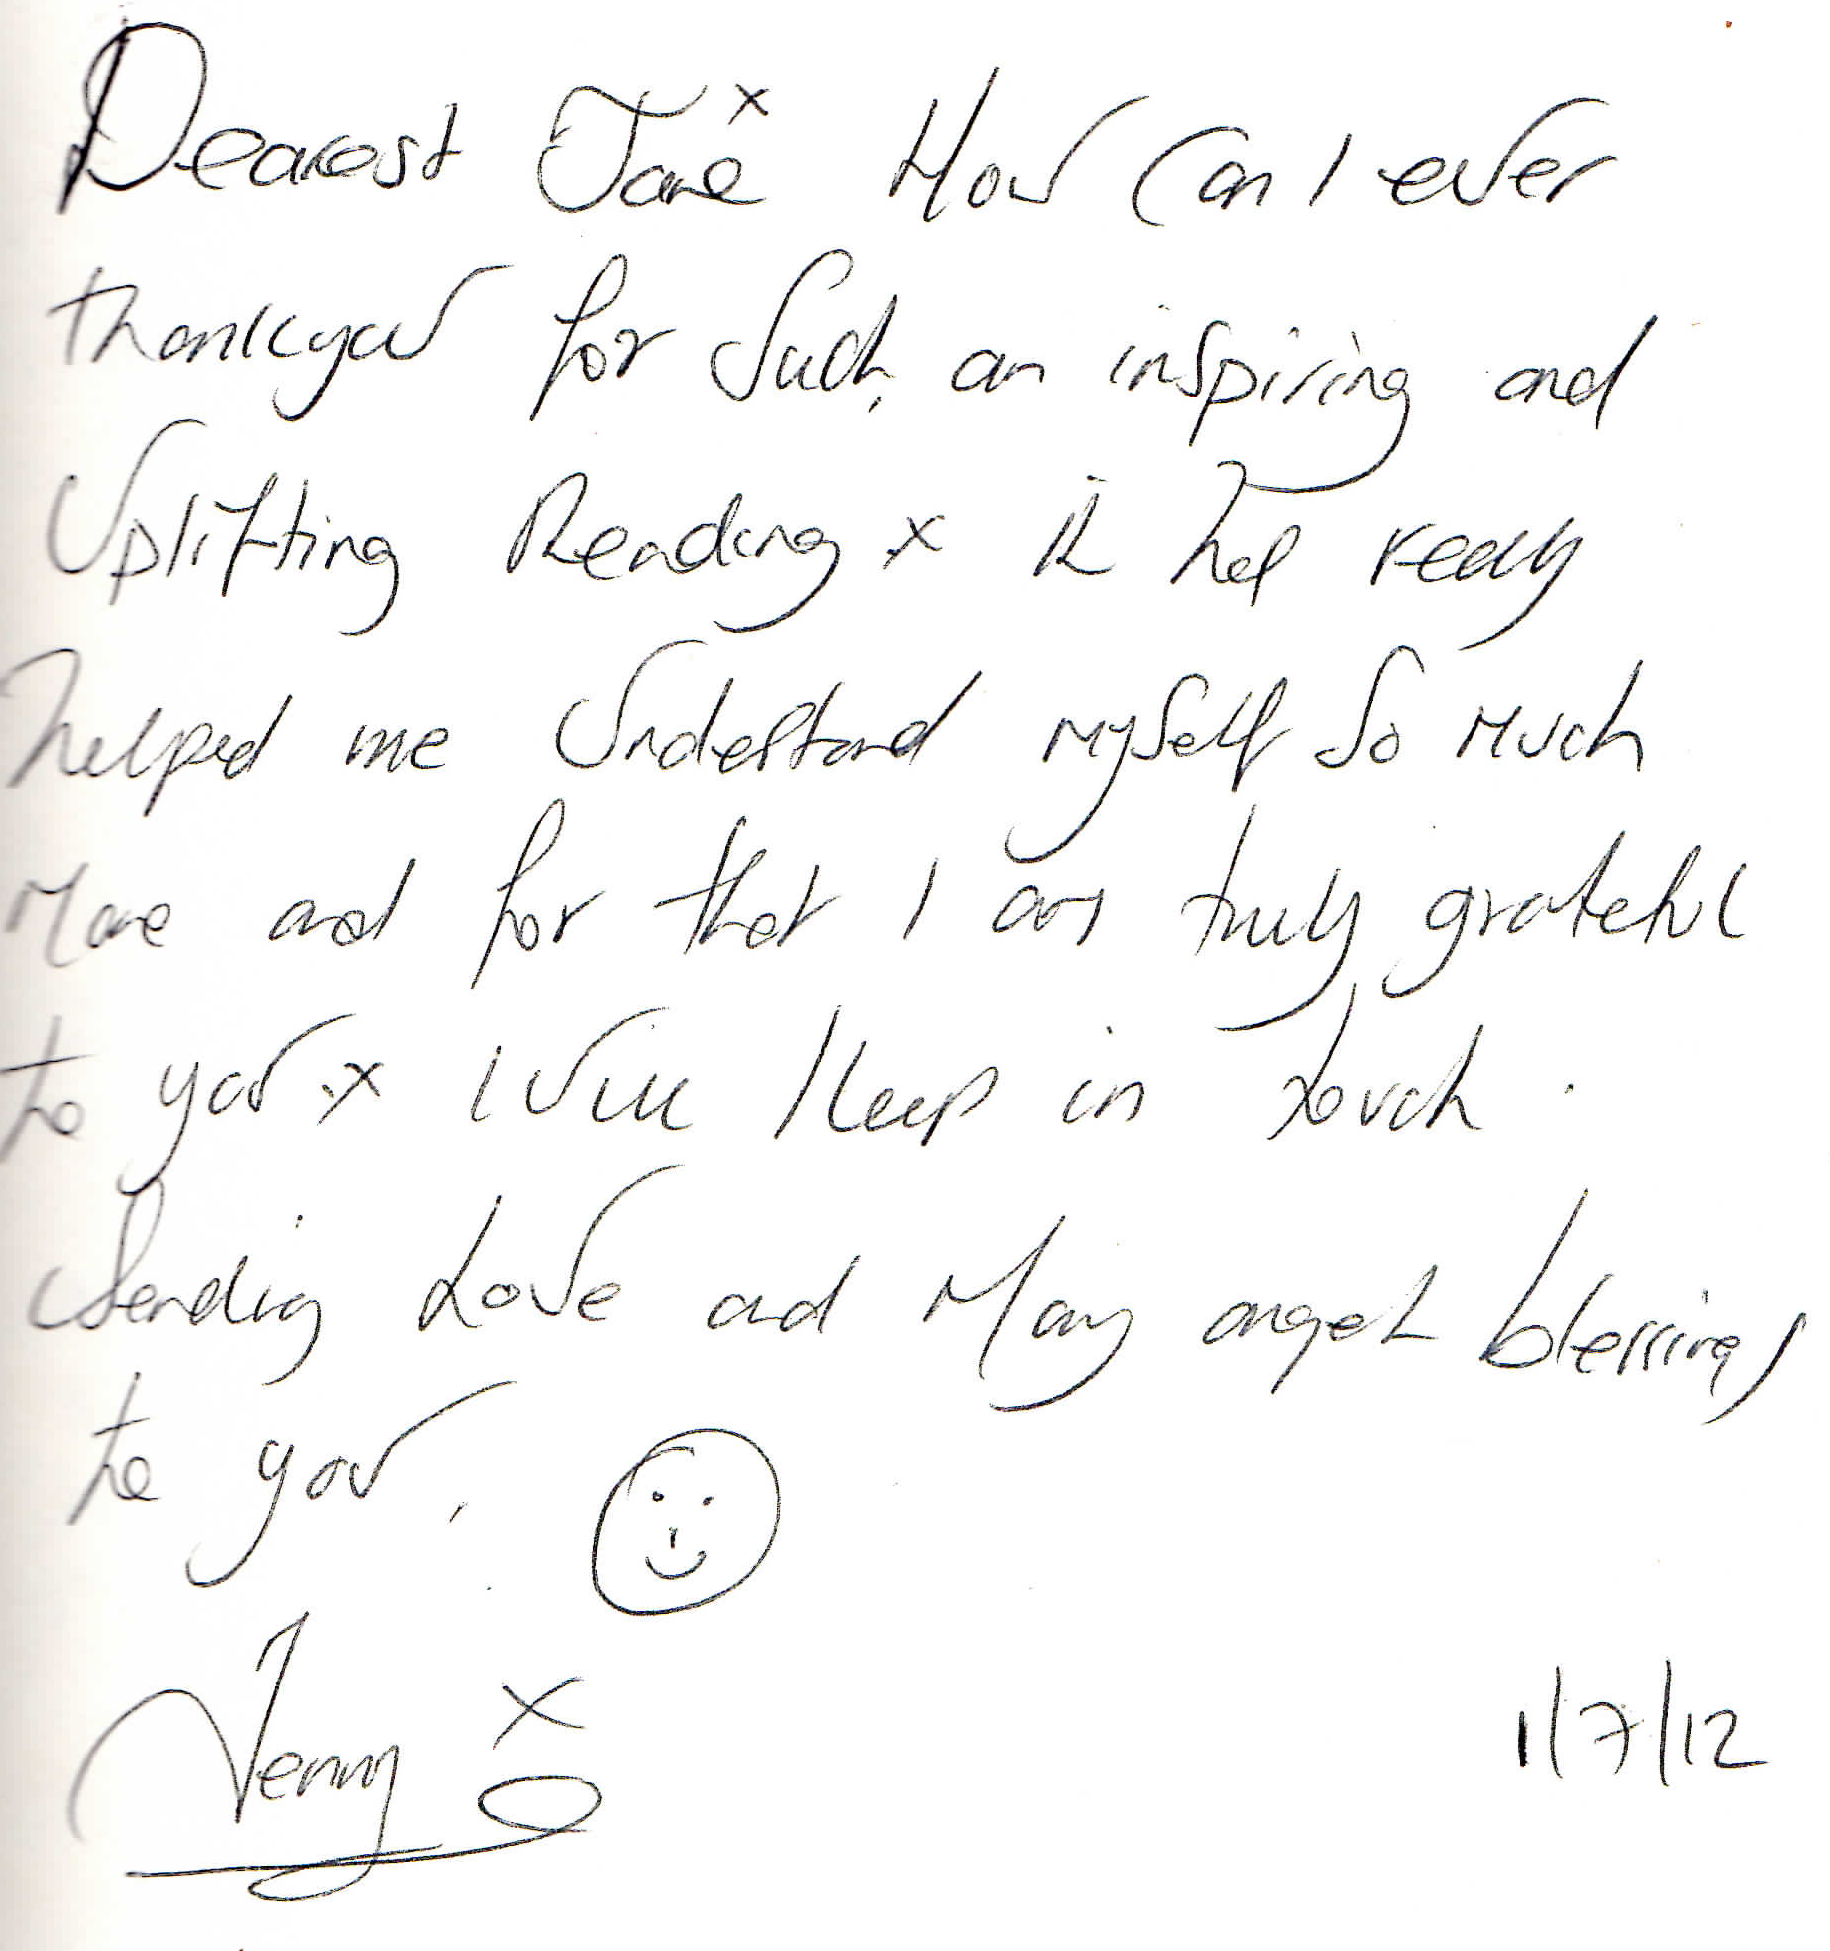 Dearest Jane x How Can I ever
thankyou for Such, an inspiring and
Uplifting Reading x it has really
helped me Understand myself So Much
More and for that I am truly grateful
to you x I will Keep in touch.
Sending Love and Many angel blessings
to you.
Jenny x
1/7/12